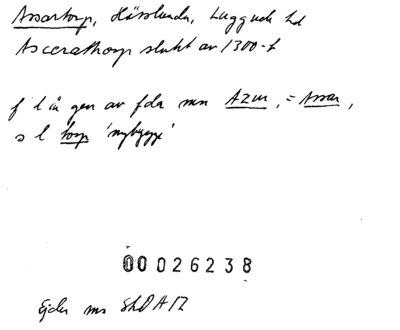 Assartorp, Hässlunda, Luggude hd
Ascerathorp slutet av 1300-t
f l är gen av fda mn Azur, = Assar,
s l torp 'nybygge'
00026238
Ejder ms SkO A12